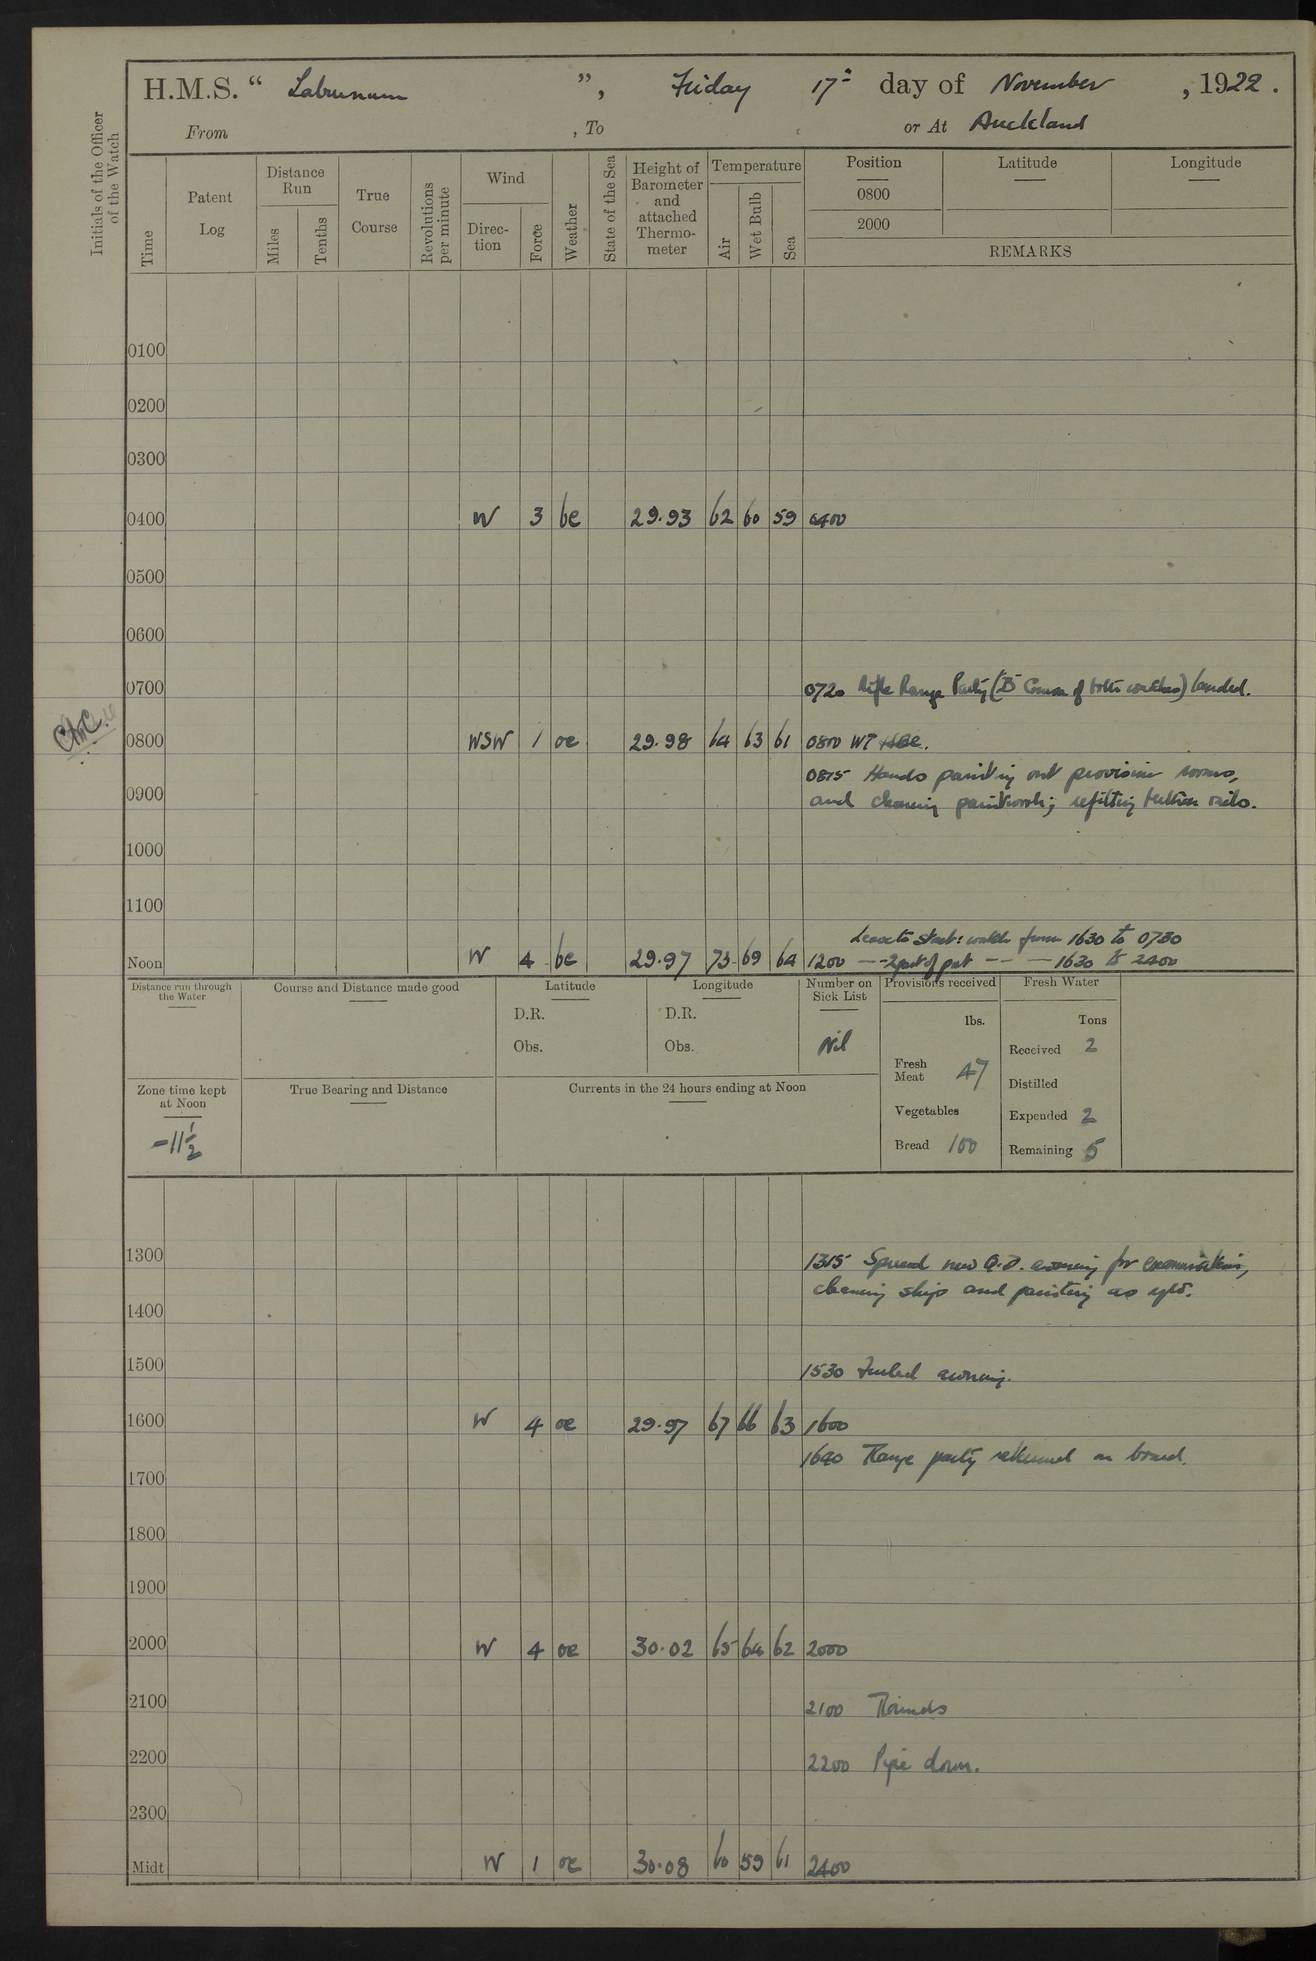 H.M.S. “ Labrunum ”, Friday 17th day of November , 1922 .
From , To or At Auckland
Initials of the Officer of the Watch
Time
Patent Log
Distance Run
Miles
Tenths
True Course
Revolutions per minute
Wind
Direction
Force
Weather
State of the Sea
Height of Barometer and attached Thermometer
Temperature
Air
Wet Bulb
Sea
Position Latitude Longitude
0800
2000
REMARKS
0100
0200
0300
0400 W 3 bc 29.93 62 60 59 0400
0500
0600
0700 0720 Rifle Range Party (B of both watches) landed.
0800 WSW 1 oc 29.98 64 63 61 0800 WT
0815 Hands painting out provision rooms,
0900 and cleaning paintwork; refitting rails.
1000
1100
Leave to Starb: watch from 1630 to 0730
Noon W 4 bc 29.97 73 69 64 1200 — - 2 part of port — — — 1630 to 2400
Distance run through the Water
Course and Distance made good
Latitude
D.R.
Obs.
Longitude
D.R.
Obs.
Number on Sick List
Nil
Provisions received
lbs.
Fresh Meat 47
Vegetables
Bread 100
Fresh Water
Tons
Received 2
Distilled
Expended 2
Remaining 5
Zone time kept at Noon
-11½
True Bearing and Distance
Currents in the 24 hours ending at Noon
1300 1315 Spread new Q.D. awning for examination,
cleaning ship and painting as
1400
1500 1530 Furled awning.
1600 W 4 oc 29.97 67 66 63 1600
1640 Range party returned on board.
1700
1800
1900
2000 W 4 oc 30.02 65 64 62 2000
2100 2100 Rounds
2200 2200 Pipe down.
2300
Midt W 1 oc 30.08 60 59 61 2400